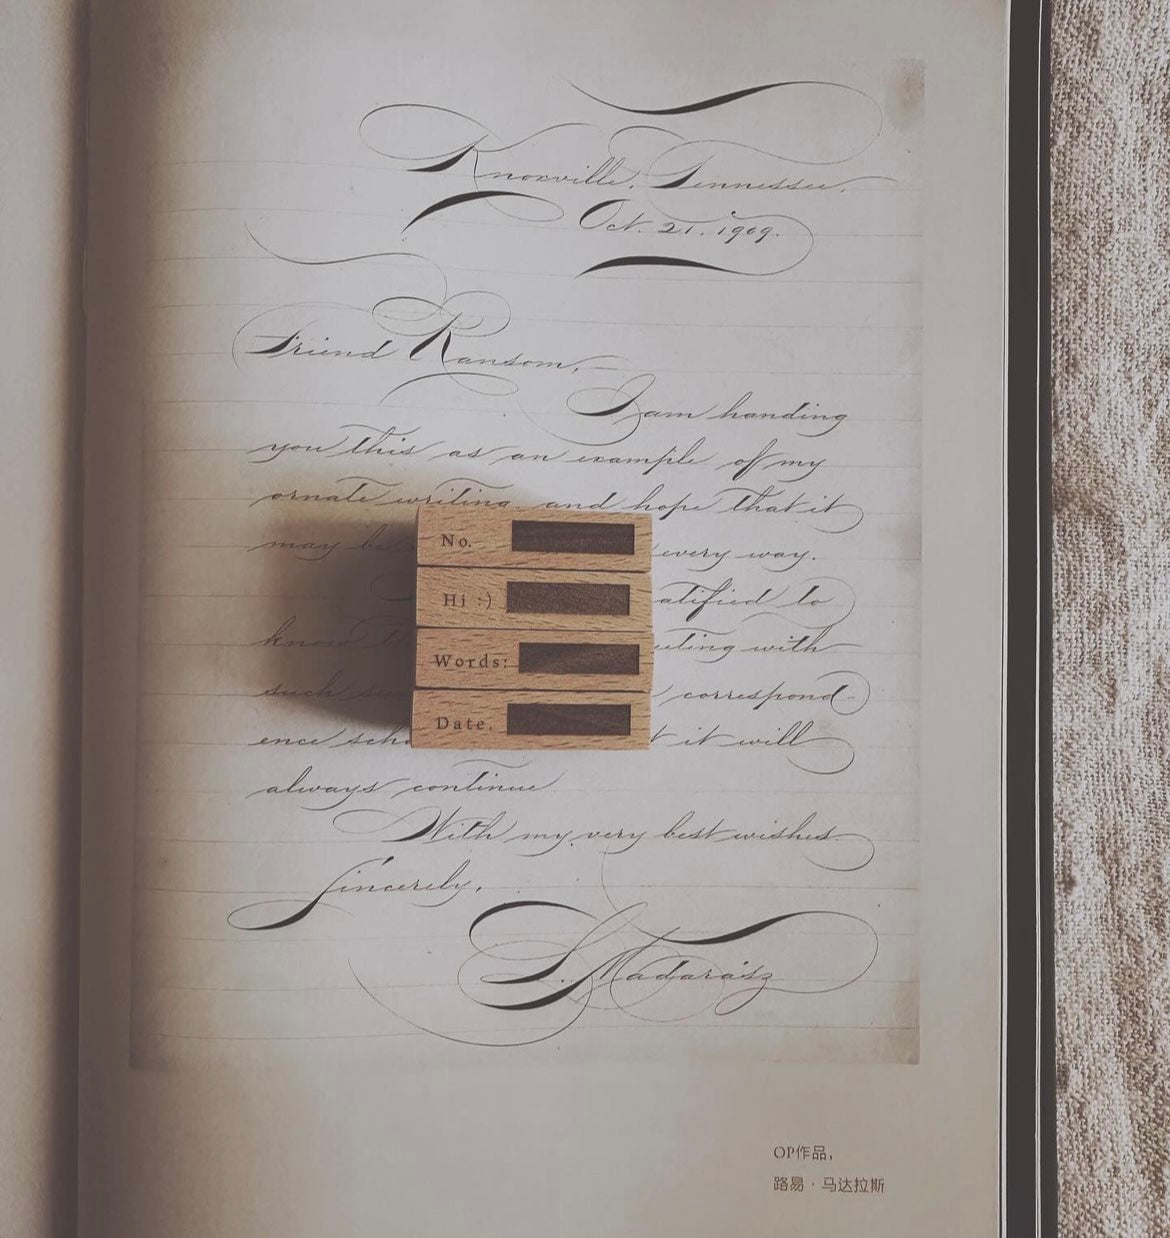 Knoxville, Tennessee.
Oct. 21. 1909.
Friend Ransom,
I am handing
you this as an example of my
ornate writing and hope that it
may be every way.
to
know with
such correspond-
ence it will
always continue
With my very best wishes
Sincerely,
L. Madarász
No.
Hi :)
Words:
Date.
OP作品,
路易·马达拉斯